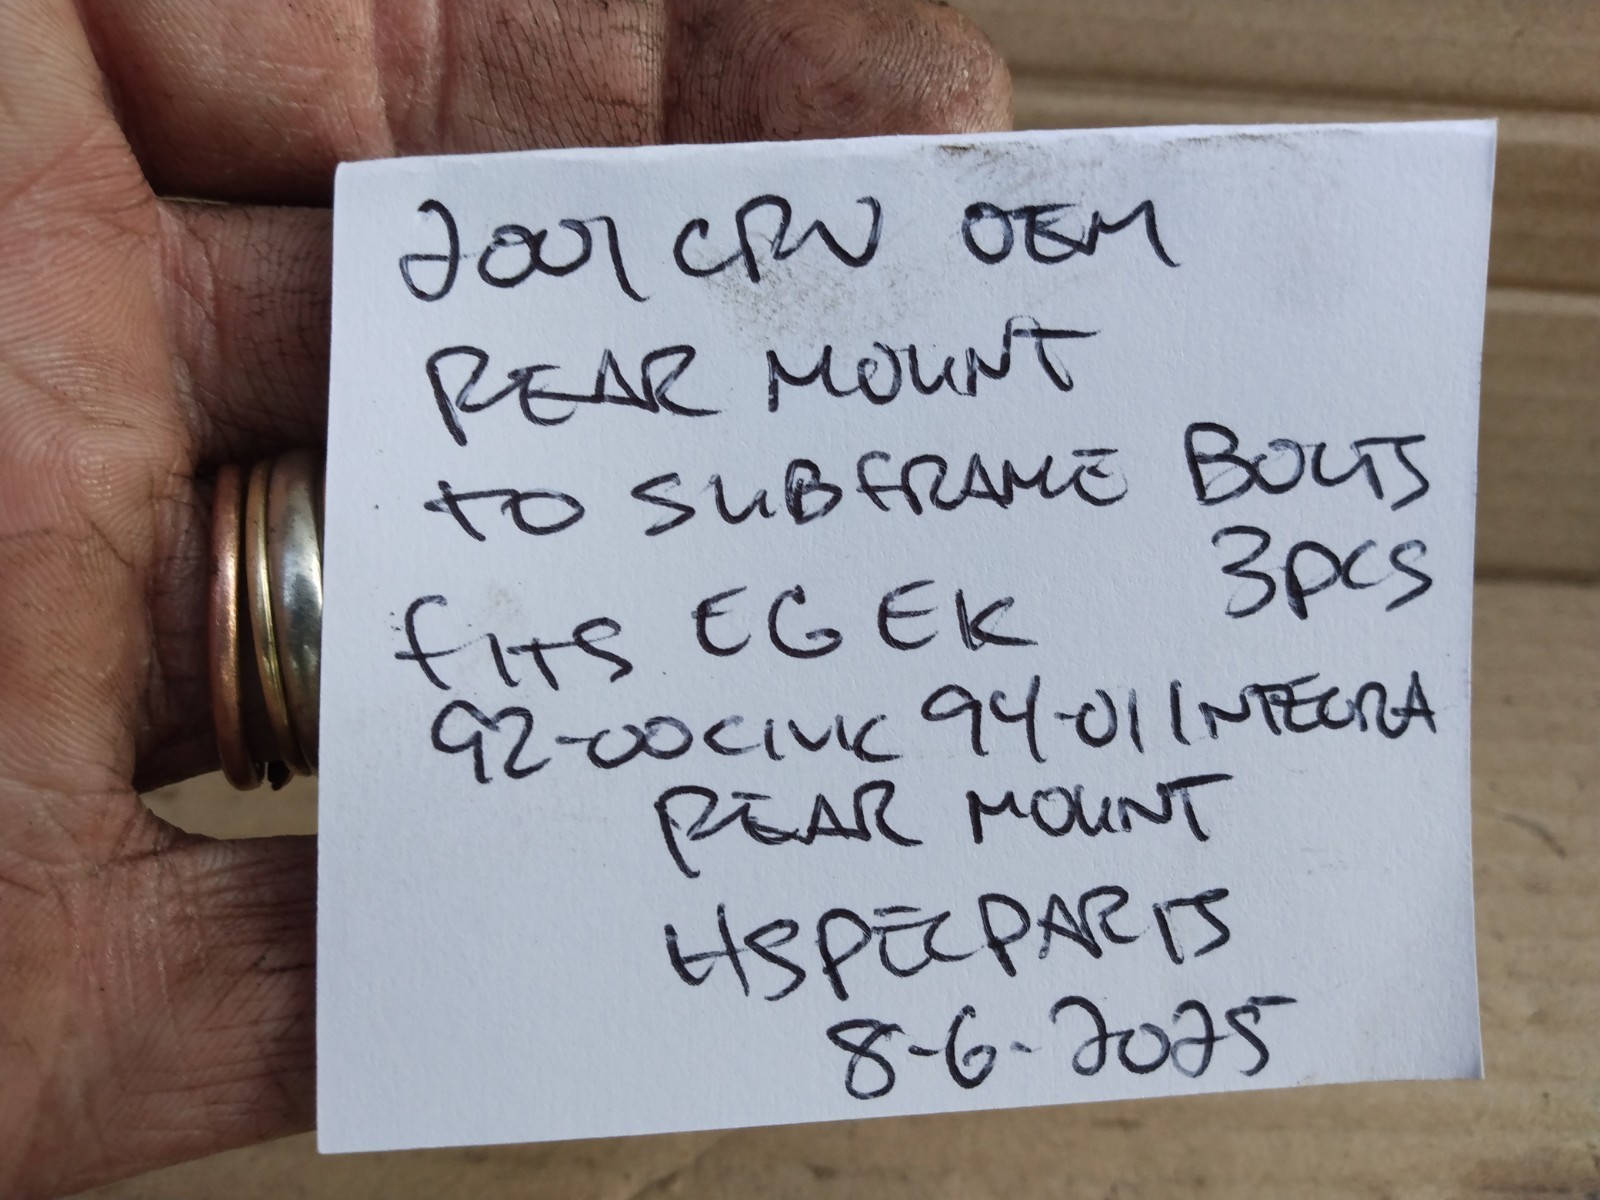 2001 CRV OEM
REAR MOUNT
TO SUBFRAME BOLTS
3PCS
FITS EG EK
92-00 CIVIC 94-01 INTEGRA
REAR MOUNT
HSPECPARTS
8-6-2025